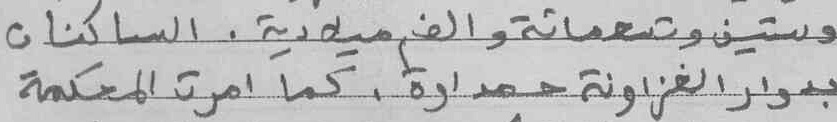 وستين وتسعمائة والف ميلادية . الساكنان
بدوار الغزاونة حمداوة . كما امرت المحكمة